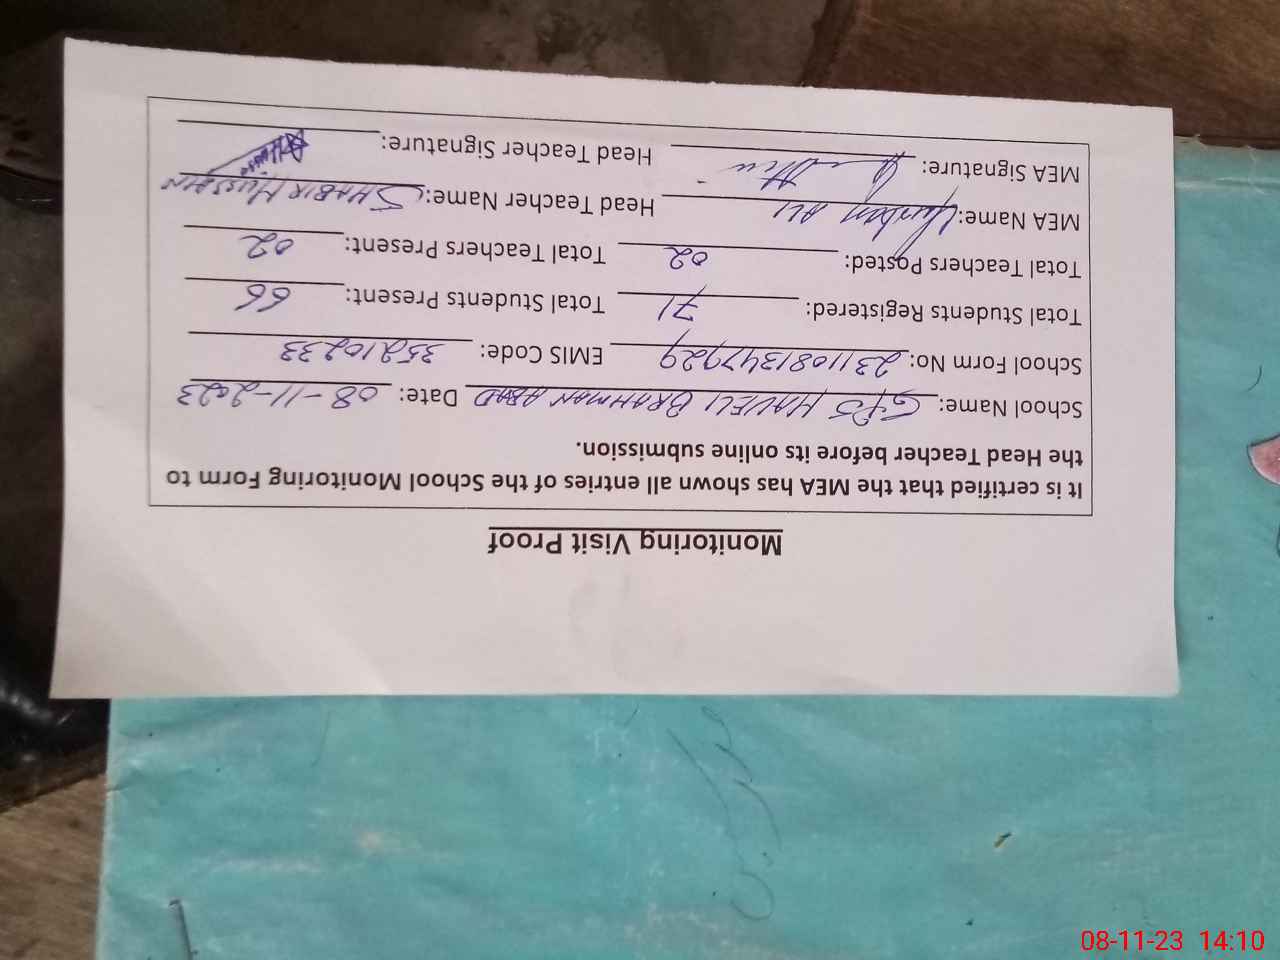 Monitoring Visit Proof
It is certified that the MEA has shown all entries of the School Monitoring Form to
the Head Teacher before its online submission.
School Name: GPS HAVELI BRAHMAN ABAD Date: 08-11-2023
School Form No: 2311081347929 EMIS Code: 35210233
Total Students Registered: 71 Total Students Present: 66
Total Teachers Posted: 02 Total Teachers Present: 02
MEA Name: ALI Head Teacher Name: SHABIR HUSSAIN
MEA Signature: Head Teacher Signature:
08-11-23 14:10